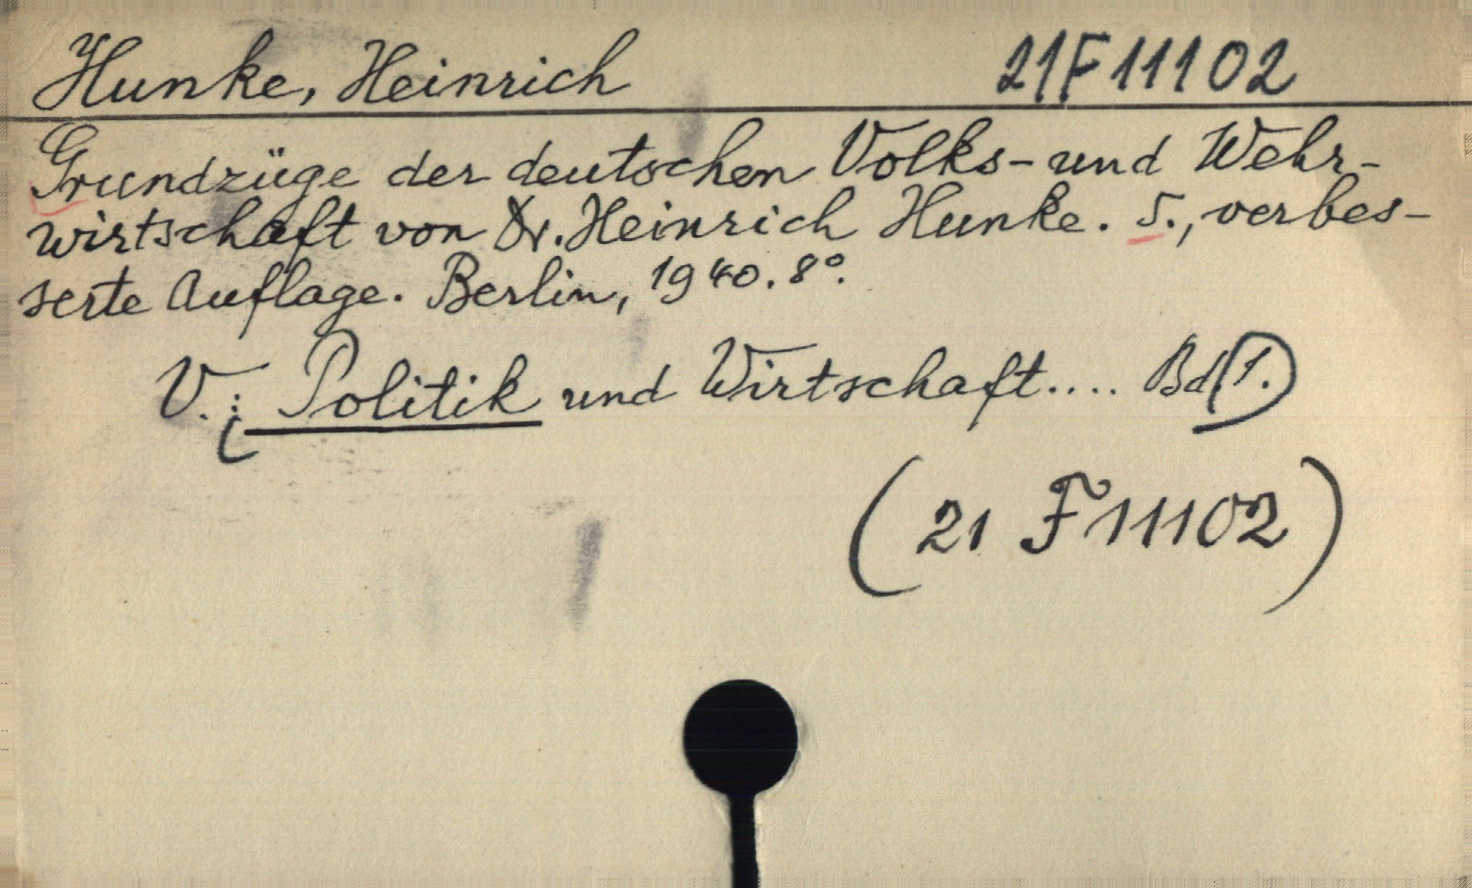 Hunke, Heinrich 21F11102
Grundzüge der deutschen Volks- und Wehr-
wirtschaft von Dr. Heinrich Hunke. 5., verbes-
serte Auflage. Berlin, 1940. 8°.
V.: Politik und Wirtschaft.... Bd(1.)
(21 F11102)